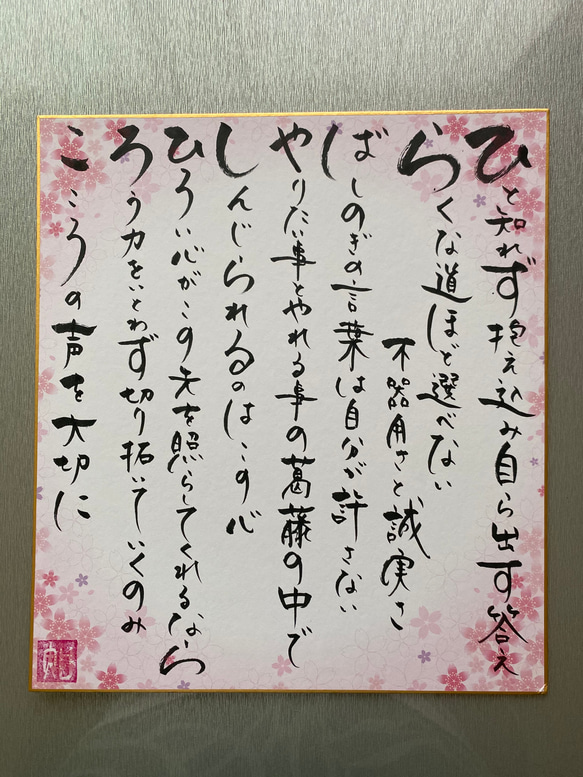 ひと知れず抱え込み自ら出す答え
らくな道ほど選べない
不器用さと誠実さ
ばしのぎの言葉は自分が許さない
やりたい事とやれる事の葛藤の中で
しんじられるのはこの心
ひろい心がこの先を照らしてくれるなら
ろう力をいとわず切り拓いていくのみ
こころの声を大切に